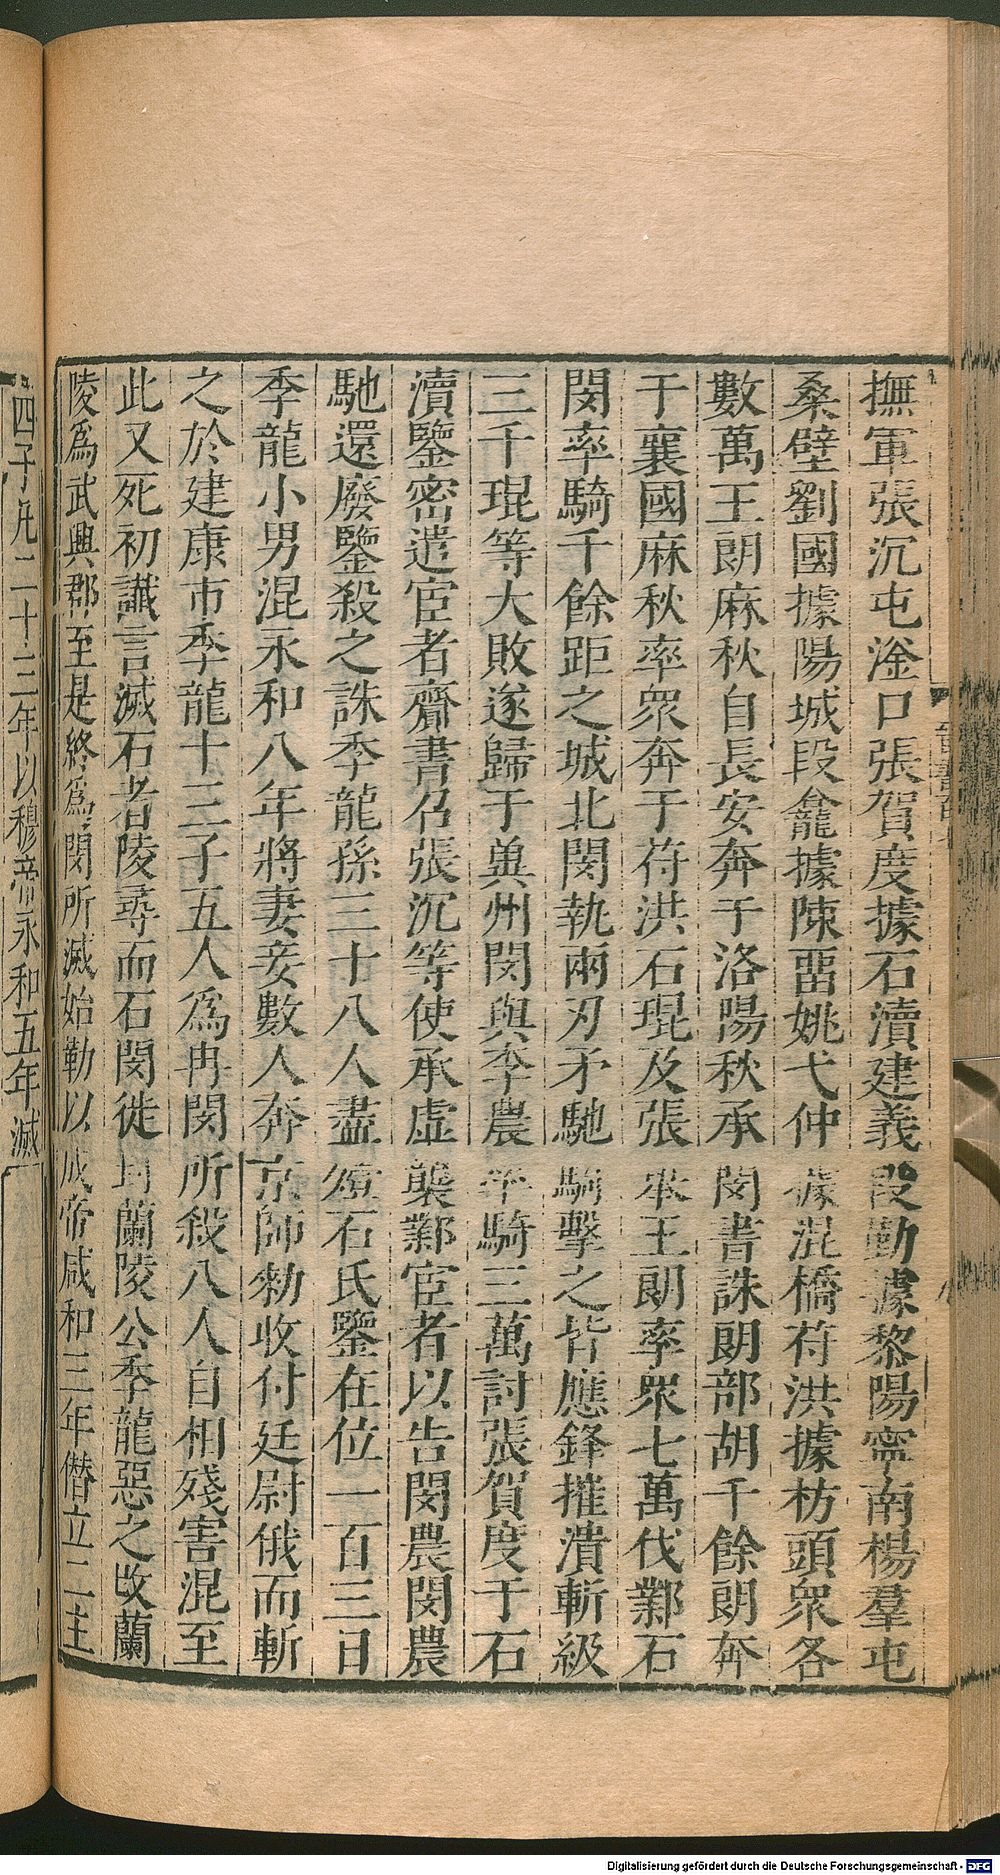 撫軍張沉屯滏口張賀度據石瀆建義段勤據黎陽寧南楊羣屯
桑壁劉國據陽城段龕據陳畱姚弋仲據混橋苻洪據枋頭衆各
數萬王朗麻秋自長安奔于洛陽秋承閔書誅朗部胡千餘朗奔
于襄國麻秋率衆奔于苻洪石琨及張舉王朗率衆七萬伐鄴石
閔率騎千餘距之城北閔執兩刃矛馳騎擊之皆應鋒摧潰斬級
三千琨等大敗遂歸于兾州閔與李農率騎三萬討張賀度于石
瀆鑒密遣宦者齎書召張沉等使承虛襲鄴宦者以告閔農閔農
馳還廢鑒殺之誅季龍孫三十八人盡殪石氏鑒在位一百三日
季龍小男混永和八年將妻妾數人奔京師勑收付廷尉俄而斬
之於建康市季龍十三子五人爲冉閔所殺八人自相殘害混至
此又死初讖言滅石者陵尋而石閔徙封蘭陵公季龍惡之改蘭
陵爲武興郡至是終爲閔所滅始勒以成帝咸和三年僣立二主
四子凡二十三年以穆帝永和五年滅
Digitalisierung gefördert durch die Deutsche Forschungsgemeinschaft - DFG